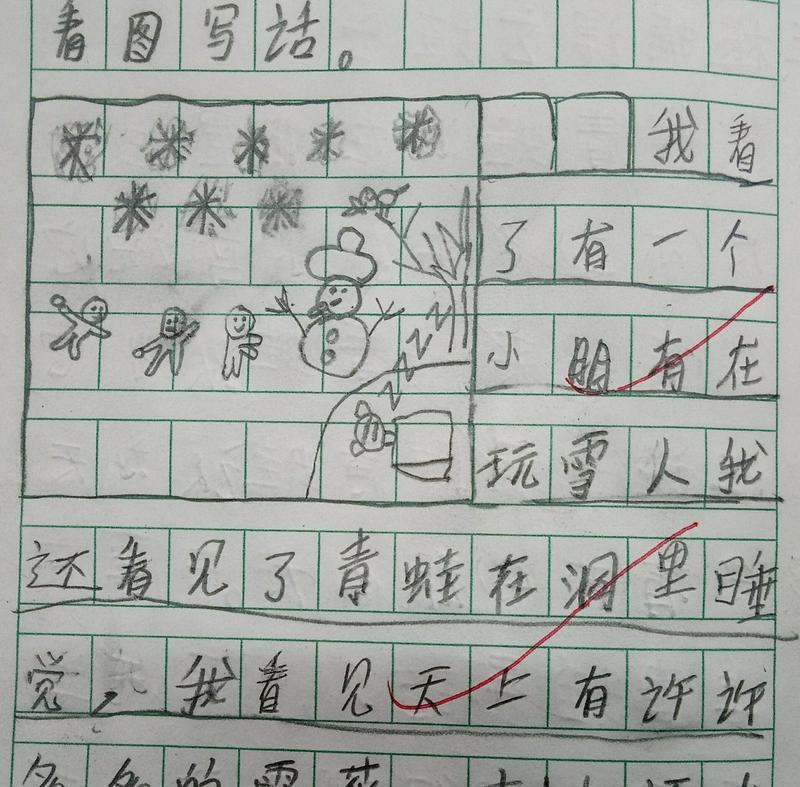 看图写话。
我看
了有一个
小明有在
玩雪人我
还看见了青蛙在洞里睡
觉，我看见天上有许许
多多的雪花